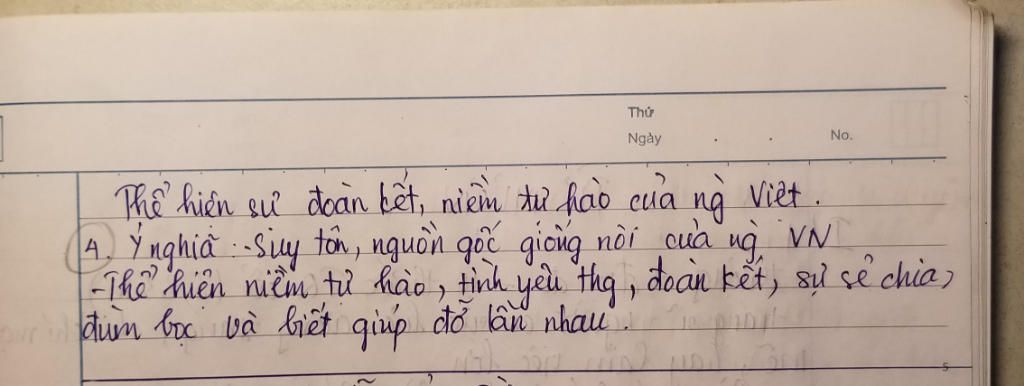 Thứ
Ngày . . No.
Thể hiện sự đoàn kết, niềm tự hào của ng Việt.
4. Ý nghĩa : - Suy tôn, nguồn gốc giống nòi của ng VN
- Thể hiện niềm tự hào, tình yêu thg, đoàn kết, sự sẻ chia,
đùm bọc và biết giúp đỡ lẫn nhau.
5